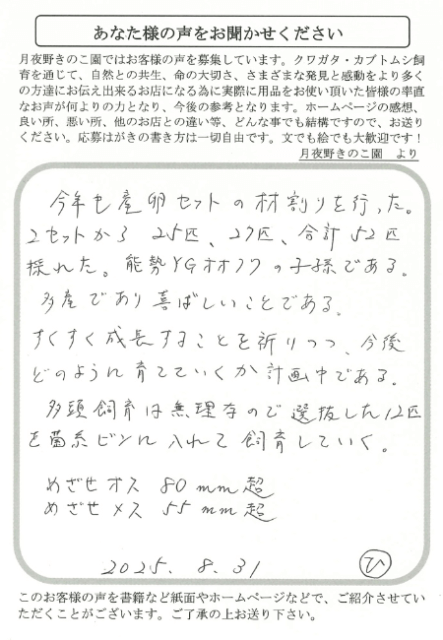 あなた様の声をお聞かせください
月夜野きのこ園ではお客様の声を募集しています。クワガタ・カブトムシ飼
育を通じて、自然との共生、命の大切さ、さまざまな発見と感動をより多く
の方達にお伝え出来るお店になる為に実際に用品をお使い頂いた皆様の率直
なお声が何よりの力となり、今後の参考となります。ホームページの感想、
良い所、悪い所、他のお店との違い等、どんな事でも結構ですので、お送り
ください。応募はがきの書き方は一切自由です。文でも絵でも大歓迎です！
月夜野きのこ園　より
今年も産卵セットの材割りを行った。
2セットから 25匹、27匹、合計52匹
採れた。能勢YGオオクワの子孫である。
多産であり喜ばしいことである。
すくすく成長することを祈りつつ、今後
どのように育てていくか計画中である。
多頭飼育は無理なので選抜した12匹
を菌糸ビンに入れて飼育していく。
めざせオス 80mm超
めざせメス 55mm超
2025. 8. 31
ひ
このお客様の声を書籍など紙面やホームページなどで、ご紹介させてい
ただくことがございます。ご了承の上お送り下さい。